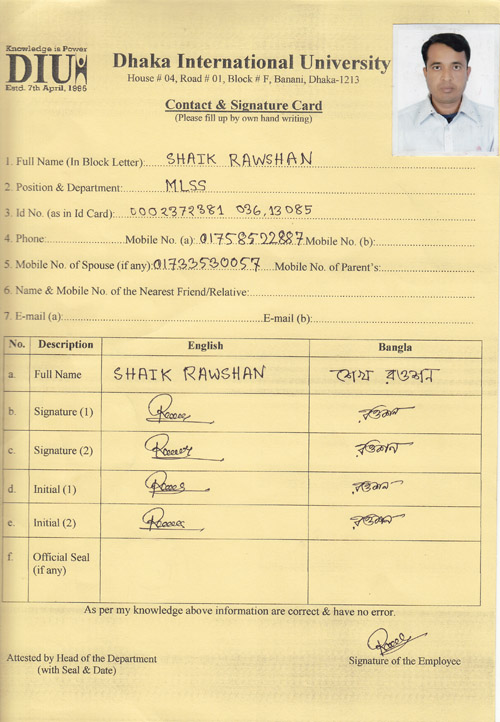 Knowledge is Power
DIU
Estd. 7th April, 1995
Dhaka International University
House # 04, Road # 01, Block # F, Banani, Dhaka-1213
Contact & Signature Card
(Please fill up by own hand writing)
1. Full Name (In Block Letter): SHAIK RAWSHAN
2. Position & Department: MLSS
3. Id No. (as in Id Card): 0002372381 036,13085
4. Phone: Mobile No. (a): 01758522887 Mobile No. (b):
5. Mobile No. of Spouse (if any): 01733530057 Mobile No. of Parent's:
6. Name & Mobile No. of the Nearest Friend/Relative:
7. E-mail (a): E-mail (b):
No. Description English Bangla
a. Full Name SHAIK RAWSHAN শেখ রওশন
b. Signature (1) রওশন
c. Signature (2) রওশন
d. Initial (1) রওশন
e. Initial (2) রওশন
f. Official Seal
(if any)
As per my knowledge above information are correct & have no error.
Attested by Head of the Department
(with Seal & Date)
Signature of the Employee